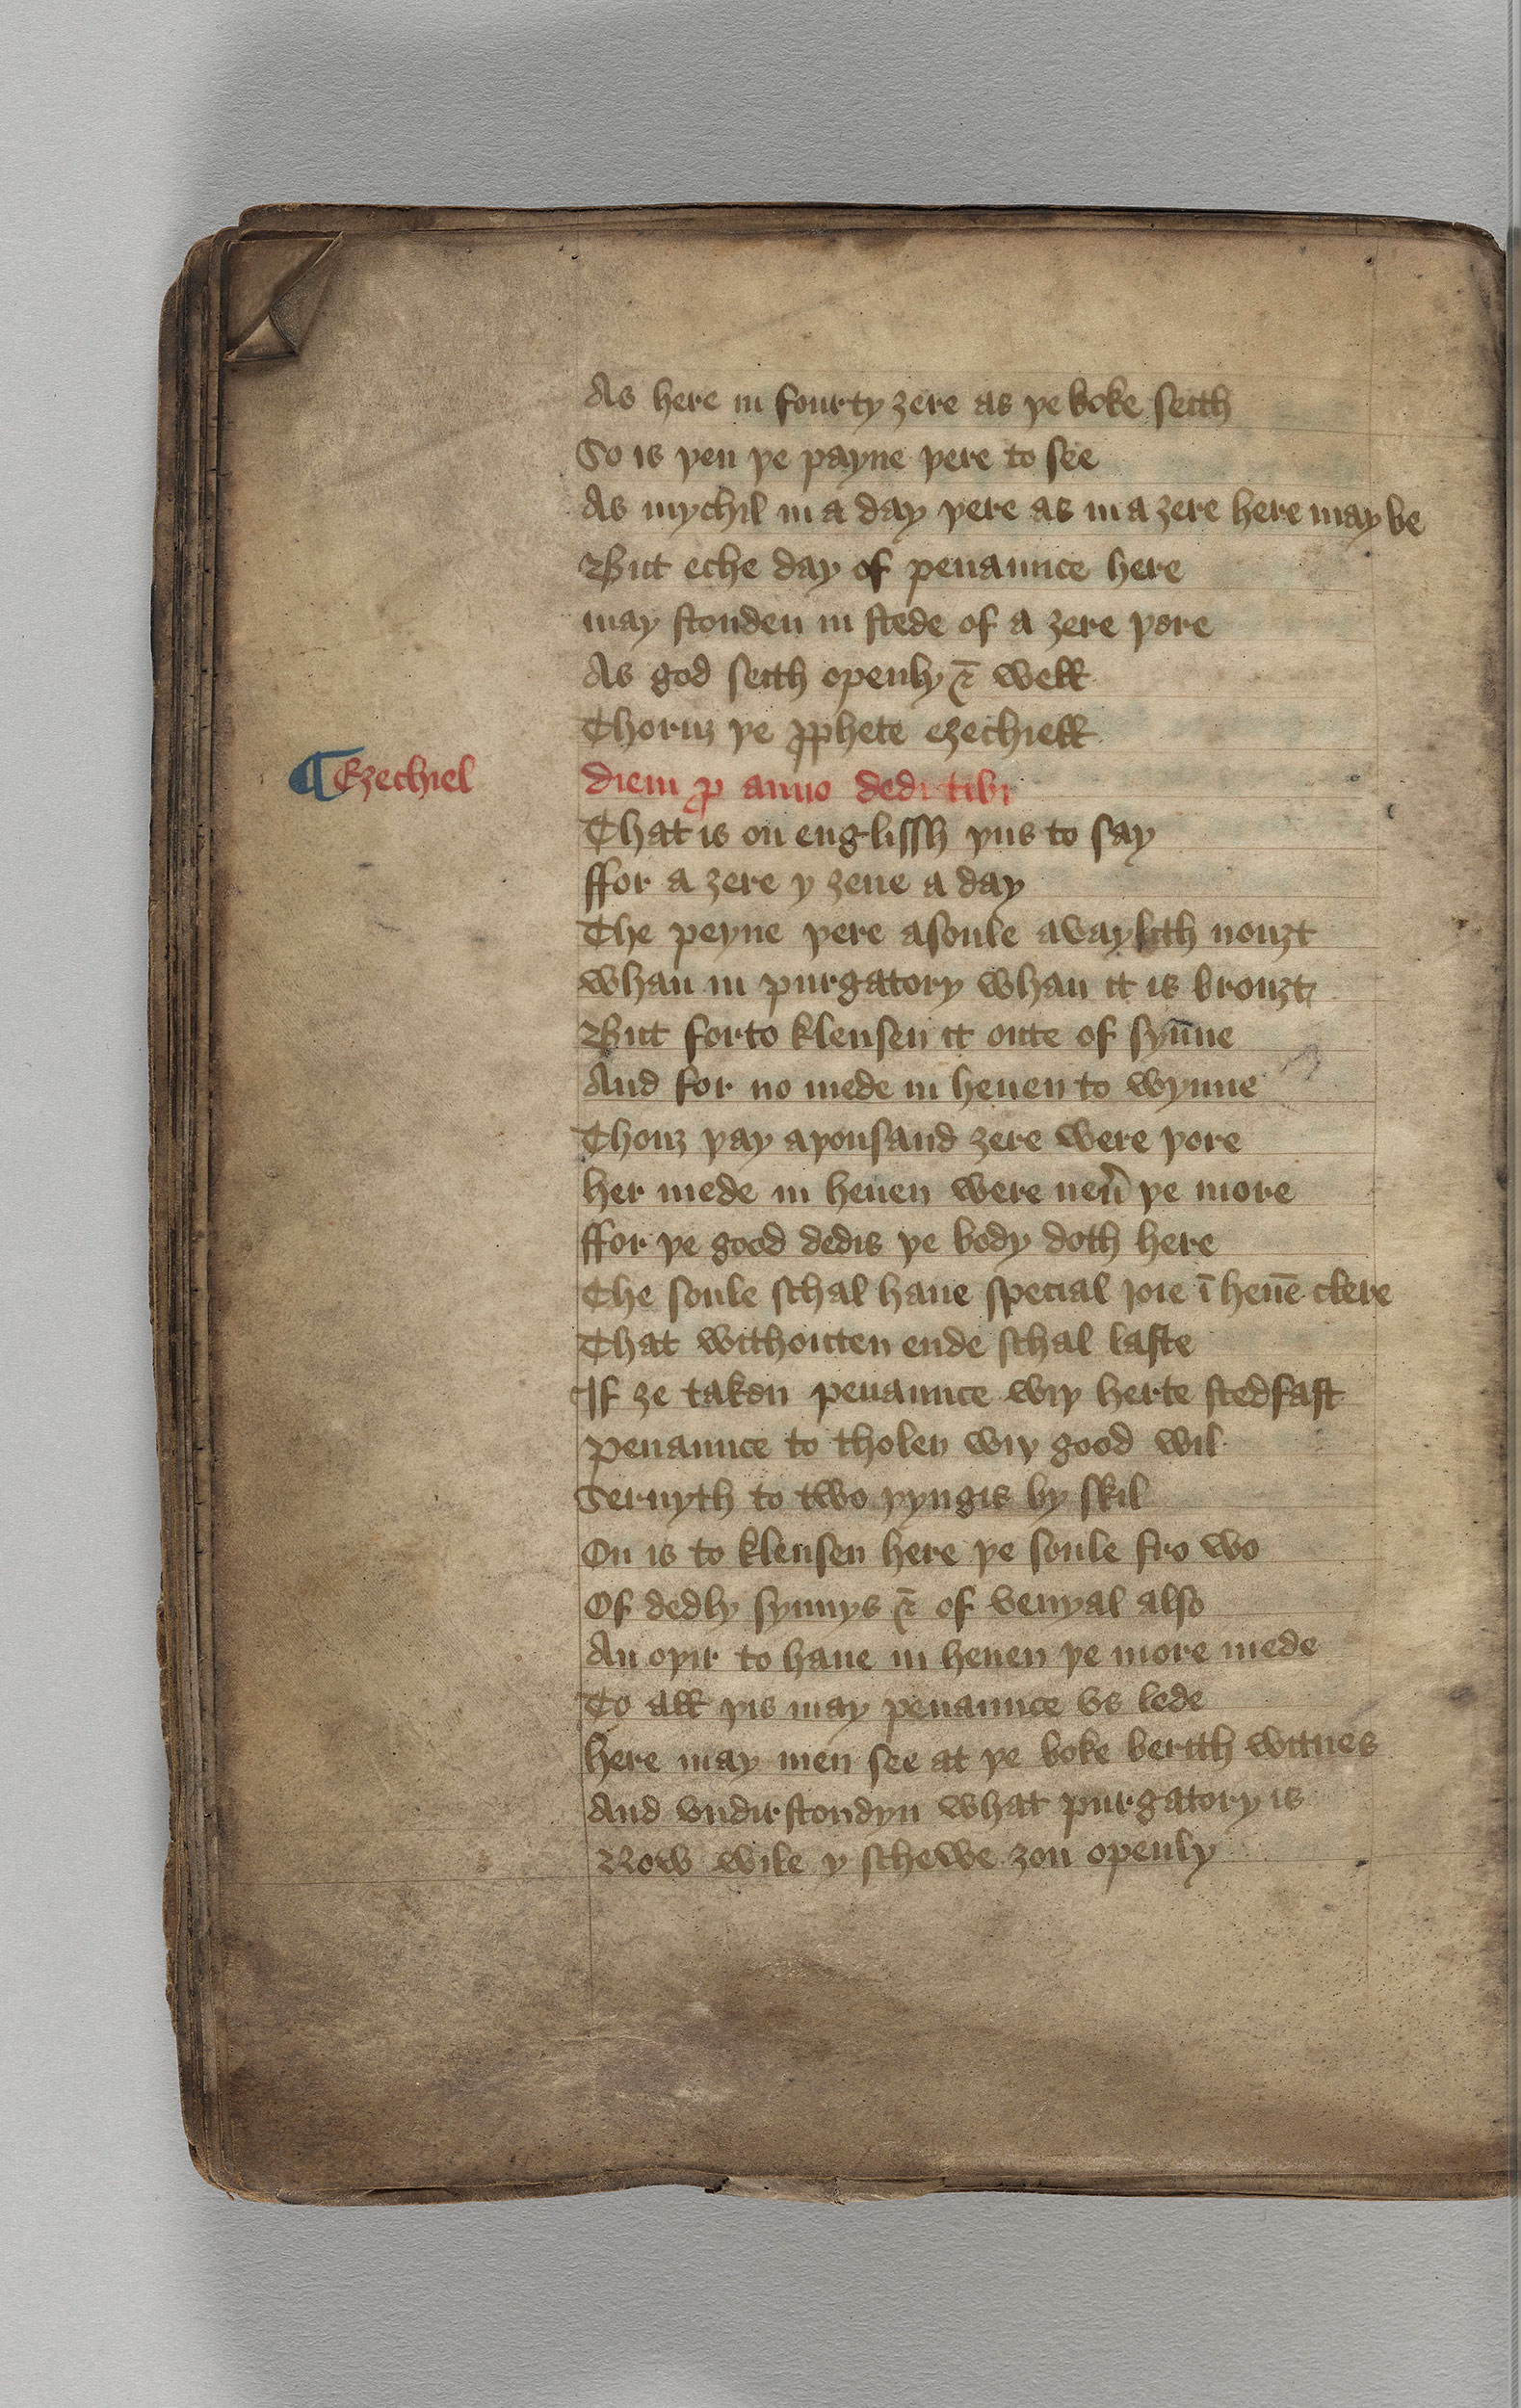 As here in fourty ȝere as þe boke seith
So is þen þe payne þere to see
As mychil in a day þere as in a ȝere here may be
But eche day of penaunce here
may stonden in stede of a ȝere þore
As god seith openly & well
Thoruȝ þe ꝓphete eȝechiell
¶ Ezechiel
diem ꝓ anno dedi tibi
That is on englissh þus to say
ffor a ȝere y ȝeue a day
The peyne þere asoule avayleth nouȝt
whan in purgatory whan it is brouȝt
But forto klensen it oute of syn̄ne
And for no mede in heuen to wynne
Thouȝ þay aþousand ȝere were þore
her mede in heuen were neũ þe more
ffor þe good dedis þe body doth here
The soule schal haue special ioie ī heuē clere
That withouten ende schal laste
If ȝe taken penaunce wiþ herte stedfast
penaunce to tholen wiþ good wil
Seruyth to two þyngis by skil
On is to klensen here þe soule fro wo
Of dedly synnys & of venyal also
An oþir to haue in heuen þe more mede
To all þis may penaunce vs lede
here may men see at þe boke berith witnes
And vndirstondyn what purgatory is
Now wile y schewe ȝou openly